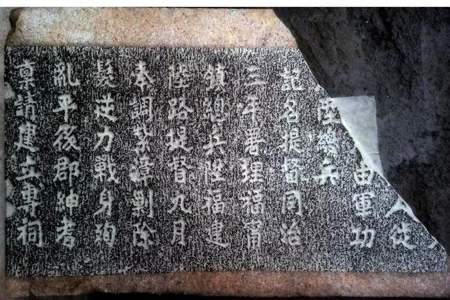 徒
由軍功
陞總兵
記名提督同治
三年署理福甯
鎮總兵陞福建
陸路提督九月
奉調紮漳剿除
髮逆力戰身殉
亂平後郡紳耆
稟請建立專祠